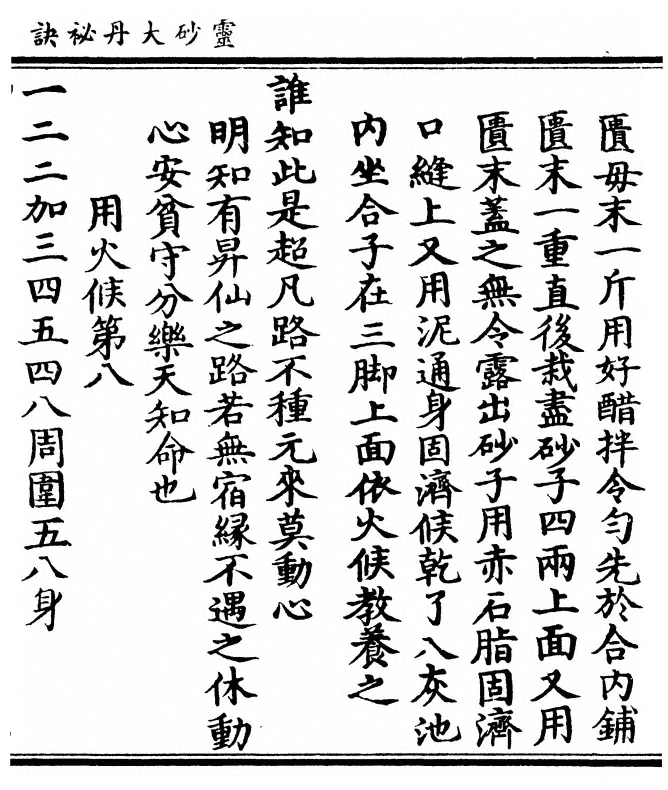 靈砂大丹祕訣
匱母末一斤用好醋拌令勻先於合內鋪
匱末一重直後栽盡砂子四兩上面又用
匱末蓋之無令露出砂子用赤石脂固濟
口縫上又用泥通身固濟候乾了入灰池
內坐合子在三脚上面依火候教養之
誰知此是超凡路不種元來莫動心
明知有昇仙之路若無宿緣不遇之休動
心安貧守分樂天知命也
用火候第八
一二二加三四五四八周圍五八身